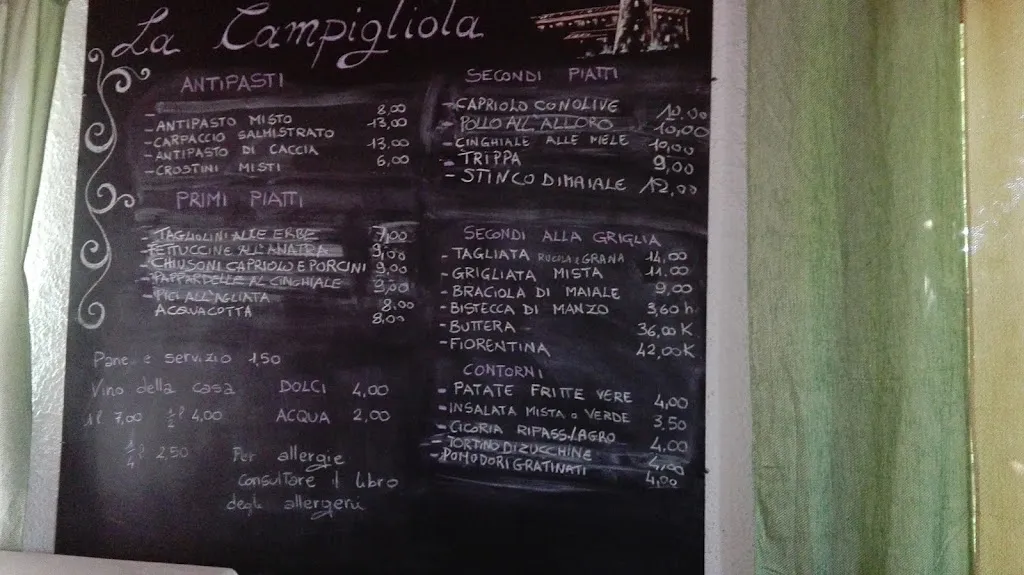 La Campigliola
ANTIPASTI
8,00
- ANTIPASTO MISTO 13,00
- CARPACCIO SALMISTRATO
- ANTIPASTO DI CACCIA 13,00
- CROSTINI MISTI 6,00
PRIMI PIATTI
- TAGLIOLINI ALLE ERBE 7,00
- FETTUCCINE ALL'ANATRA 9,00
- CHIUSONI CAPRIOLO E PORCINI 9,00
- PAPPARDELLE AL CINGHIALE 9,00
- PICI ALL'AGLIATA 8,00
ACQUACOTTA 8,00
Pane e servizio 1,50
Vino della casa
1l 7,00 ½l 4,00
¼l 2,50
DOLCI 4,00
ACQUA 2,00
Per allergie
consultare il libro
degli allergeni
SECONDI PIATTI
- CAPRIOLO CON OLIVE 10,00
- POLLO ALL'ALLORO 10,00
- CINGHIALE ALLE MELE 10,00
- TRIPPA 9,00
- STINCO DI MAIALE 12,00
SECONDI ALLA GRIGLIA
- TAGLIATA RUCOLA E GRANA 14,00
- GRIGLIATA MISTA 11,00
- BRACIOLA DI MAIALE 9,00
- BISTECCA DI MANZO 3,60 h
- BUTTERA 36,00 K
- FIORENTINA 42,00 K
CONTORNI
- PATATE FRITTE VERE 4,00
- INSALATA MISTA o VERDE 3,50
- CICORIA RIPASS/AGRO 4,00
- TORTINO DI ZUCCHINE 4,00
- POMODORI GRATINATI 4,00